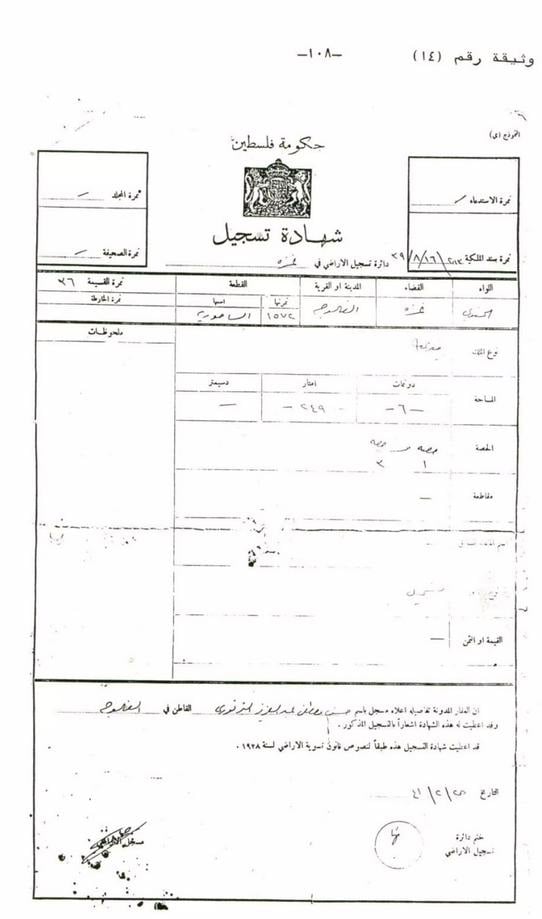 وثيقة رقم (١٤)
—١٠٨—
النموذج (ي)
حكومة فلسطين
نمرة الاستدعاء
نمرة المجلد
شهادة تسجيل
نمرة سند الملكية
نمرة الصحيفة
دائرة تسجيل الاراضي في غزه
اللواء القضاء المدينة او القرية القطعة نمرة القسيمة ٣٦
نمرتها اسمها نمرة الخارطة
غزه الفالوجه ١٥٧٢
ملحوظات
نوع الملك
دونمات امتار دسيمتر
المساحة —٦— —٢٤٩— —
الحصة حصه من حصه
١ ٣
مقاطعة —
القيمة او الثمن —
ان العقار المدونة تفاصيله اعلاه مسجل باسم حسن مصطفى عبد العزيز القاطن في الفالوجه
وقد اعطيت له هذه الشهادة اشعاراً بالتسجيل المذكور .
قد اعطيت شهادة التسجيل هذه طبقاً لنصوص قانون تسوية الاراضي لسنة ١٩٢٨ .
التاريخ
ختم دائرة
تسجيل الاراضي
مسجل الاراضي